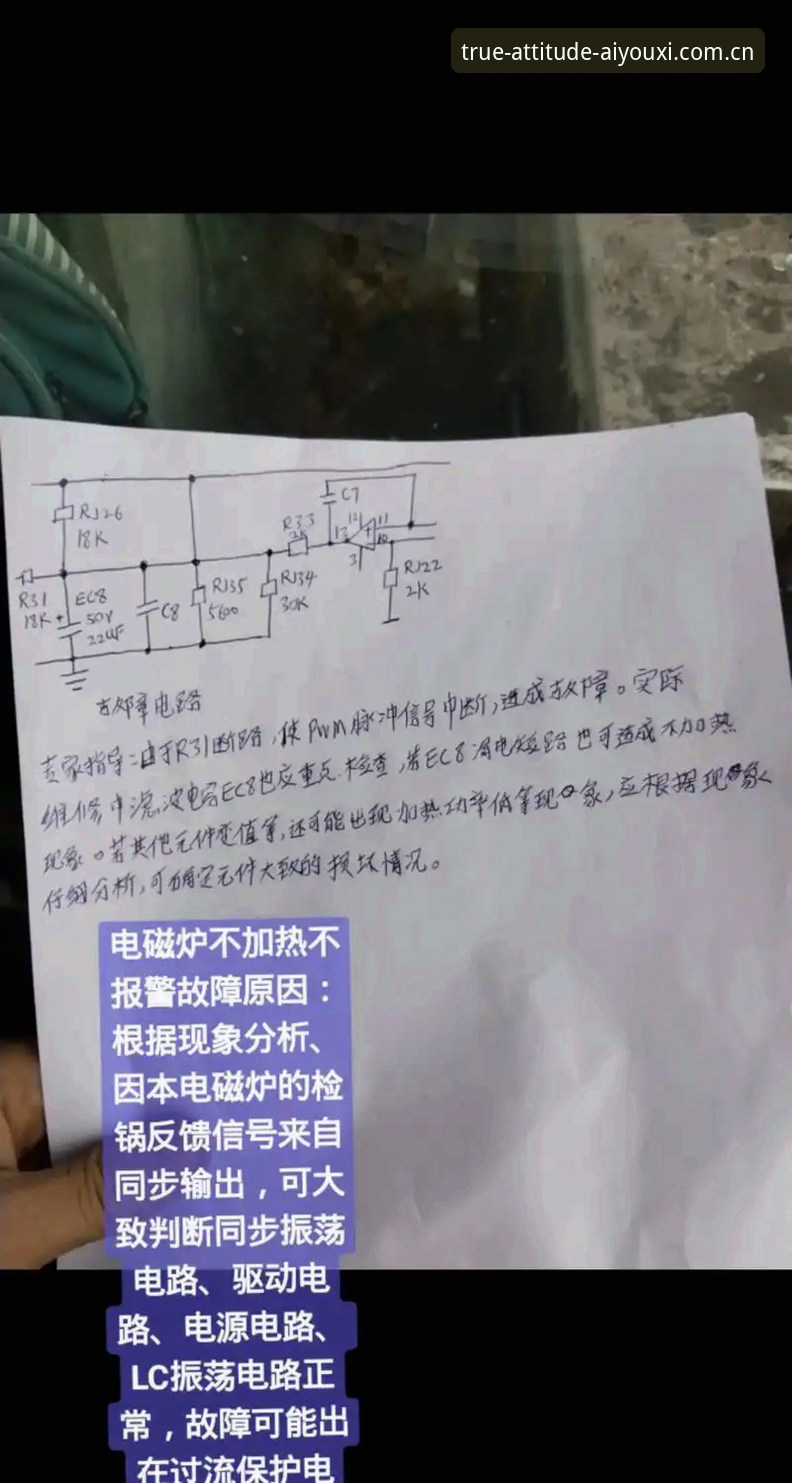 true-attitude-aiyouxi.com.cn
C7
RJ26
18K
R33
2K
12
11
13
10
3
R31
18K
EC8
50V
22uF
+
C8
RJ35
5600
RJ34
30K
RJ22
2K
故障电路
专家指导:由于R31断路,使PWM脉冲信号中断,造成故障。实际
维修中滤波电容EC8也应重点检查,若EC8漏电短路也可造成不加热
现象。若其他元件变值等,还可能出现加热功率低等现象,应根据现象
仔细分析,可确定元件大致的损坏情况。
电磁炉不加热不
报警故障原因:
根据现象分析、
因本电磁炉的检
锅反馈信号来自
同步输出,可大
致判断同步振荡
电路、驱动电
路、电源电路、
LC振荡电路正
常,故障可能出
在过流保护电